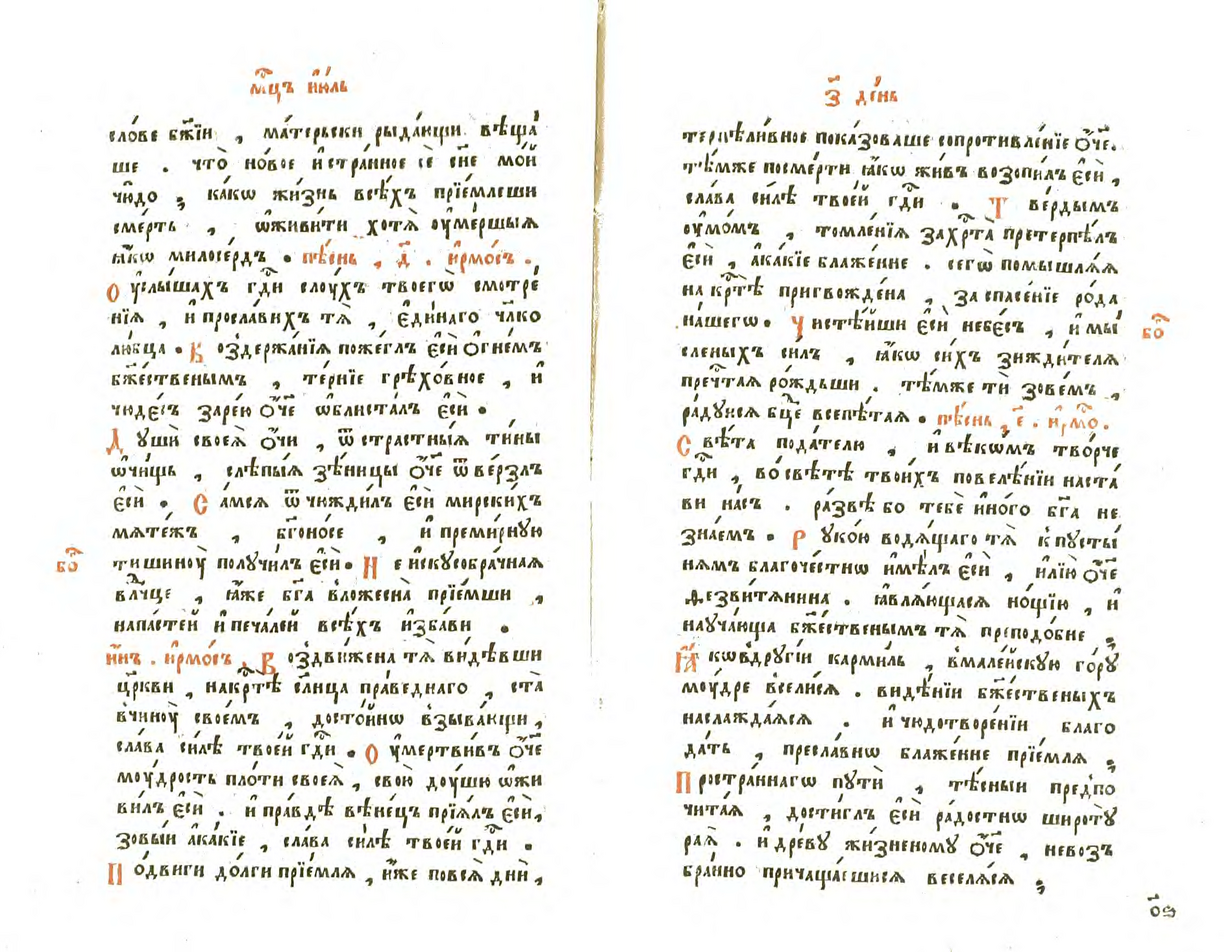 мⷭ҇цъ і҆ю́ль
сло́ве бж҃їи , ма́терьски рыда́ющи вѣща́
ше . что̀ но́вое и҆ стра́нное сѐ сн҃е мо́й
чю́до ; ка́кѡ жи́знь всѣ́хъ прїе́млеши
сме́рть , ѡ҆живи́ти хотѧ̀ оу҆ме́ршыѧ
ꙗ҆́кѡ милосе́рдъ . пѣ́снь , д҃ . і҆рмо́съ .
Оу҆слы́шахъ гдⷭ҇и слоу́хъ твоегѡ̀ смотре́
нїѧ , и҆ просла́вихъ тѧ̀ , є҆ди́наго чл҃ко
лю́бца . Воздержа́нїѧ пожеглъ є҆сѝ ѻ҆гне́мъ
бж҃е́ственымъ , те́рнїе грѣхо́вное , и҆
чюде́съ заре́ю ѻ҆́ч҃е ѡ҆блиста́лъ є҆сѝ .
Дꙋшѝ своеѧ̀ ѻ҆́чи , ѿ стра́стныѧ ти́ны
ѡ҆чи́щь , слѣпы́ѧ зѣ́ницы ѻ҆́ч҃е ѿве́рзлъ
є҆сѝ . Са́мсѧ ѿчюжди́лъ є҆сѝ мирски́хъ
мѧте́жъ , бг҃оно́се , и҆ преми́рнꙋю
тишиноу̀ полꙋчи́лъ є҆сѝ . Неи҆скꙋсобра́чнаѧ
бо҃
влⷣчце , ꙗ҆́же бг҃а вложесна̀ прїе́мши ,
напа́стей и҆ печа́лей всѣ́хъ и҆зба́ви .
и҆́нъ . і҆рмо́съ , Воздви́жена тѧ̀ ви́дѣвши
цр҃кви , накрⷭ҇тѣ̀ сл҃нца пра́веднаго , ста̀
вчиноу̀ свое́мъ , досто́йнѡ взыва́ющи ,
сла́ва си́лѣ твое́й гдⷭ҇и . Оу҆мертви́въ ѻ҆́ч҃е
моу́дрость пло́ти своеѧ̀ , свою̀ доу́шю ѡ҆жи
ви́лъ є҆сѝ . и҆ пра́вдѣ вѣне́цъ прїѧ́лъ є҆сѝ ,
зовы́й а҆ка́кїе , сла́ва си́лѣ твое́й гдⷭ҇и .
По́двиги до́лги прїе́млѧ , и҆́же повсѧ̀ дни̑ ,
з҃ де́нь
терпѣли́вное пока́зоваше сопротивле́нїе ѻ҆́ч҃е .
тѣ́мже посме́рти ꙗ҆́кѡ жи́въ возопи́лъ є҆сѝ ,
сла́ва си́лѣ твое́й гдⷭ҇и . Тве́рдымъ
оу҆мо́мъ , томле́нїѧ захрⷭ҇та̀ претерпѣ́лъ
є҆сѝ , а҆ка́кїе блаже́нне . сегѡ̀ помышлѧ́ѧ
на крⷭ҇тѣ̀ пригвожде́на , за спасе́нїе ро́да
на́шегѡ . Чистѣ́йши є҆сѝ небе́съ , и҆ мы́
бо҃
сленыхъ си́лъ , ꙗ҆́кѡ си́хъ зижди́телѧ
пречⷭ҇таѧ ро́ждьши . тѣ́мже тѝ зове́мъ ,
ра́дꙋйсѧ бц҃е всепѣ́таѧ . пѣ́снь , є҃ . і҆рмо́ .
Свѣ́та пода́телю , и҆ вѣкѡ́мъ тво́рче
гдⷭ҇и , во свѣ́тѣ твои́хъ повелѣ́нїи наста́
ви на́съ . ра́звѣ бо тебѐ и҆но́го бг҃а не
зна́емъ . Рꙋко́ю водѧ́щаго тѧ̀ к пꙋсты́
нѧмъ благоче́стнѡ и҆мѣ́лъ є҆сѝ , и҆лїю̀ ѻ҆́ч҃е
дезвитѧ́нина . ꙗ҆влѧ́ющасѧ но́щїю , и҆
наꙋча́юща бж҃е́ственымъ тѧ̀ преподо́бне ;
Ꙗ҆́кѡ вдрꙋгі́й карми́ль , вмале́йскꙋю го́рꙋ
моу́дре всели́сѧ . видѣ́нїи бж҃е́ственыхъ
наслажда́ѧсѧ . и҆ чюдотворе́нїй благо
да́ть , пресла́внѡ блаже́нне прїе́млѧ ;
Простра́ннагѡ пꙋтѝ , тѣ́сный предпо
чита́ѧ , дости́глъ є҆сѝ ра́достнѡ широтꙋ̀
раѧ̀ . и҆ дре́вꙋ жи́зненомꙋ ѻ҆́ч҃е , невозъ
бра́нно причаща́ешисѧ веселѧ́сѧ ;